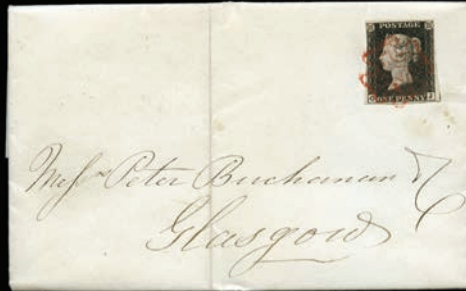 POSTAGE
ONE PENNY
Messrs Peter Buchanan & Co
Glasgow